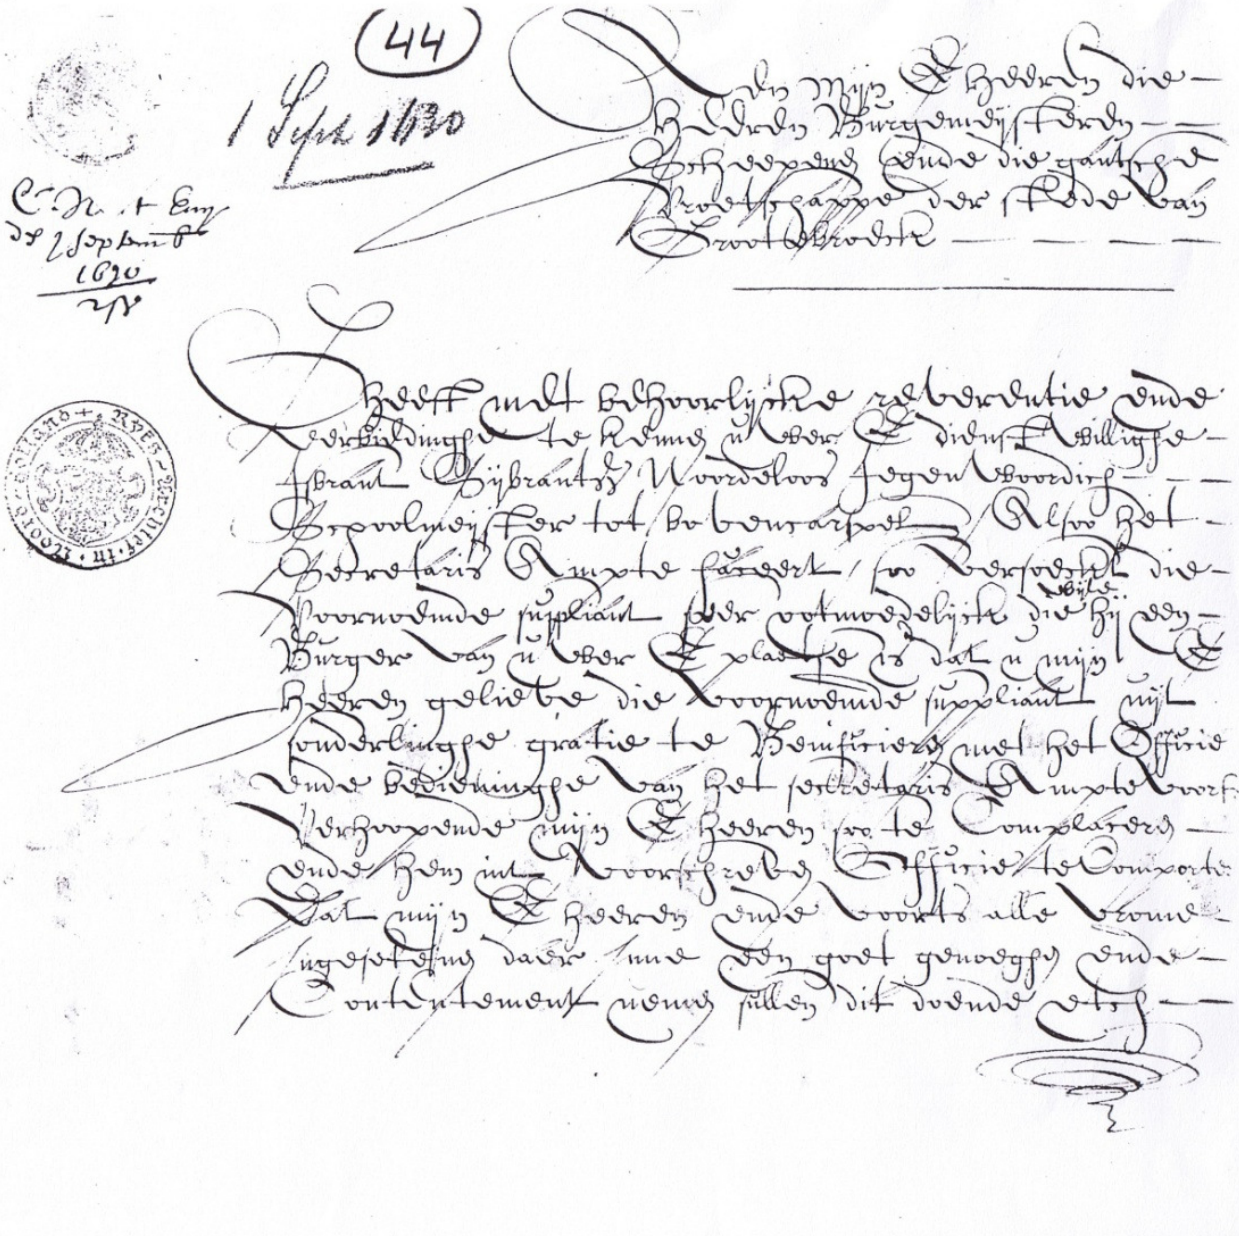 44
1 Sept 1630
Aen Mijn E heeren die
Heeren Burgemeijsteren
Scheepens ende die gantsche
Vroetschappe der stede van
Grootebroeck
septemb
1630
Rijks-Archief in Noord-Holland
Gheeft met behoorlijcke reverentie ende
eerbiedinghe te kennen u wer E dienstwillighe
Isbrant Sijbrantsz Noordeloos Jegenwoordich
Schoolmeijster tot bovencarspel Alsoo het
Secretaris Ampte vaceert soo versoeckt die
Voornoemde suppliant seer ootmoedelijck die wijle hij een
Burger van u wer E plaetse is dat u mijn E
Heeren gelieve die voornoemde suppliant uijt
sonderlinghe gratie te Benificieren met het Officie
ende bedieninghe van het secretaris Ampte voors
Verhoopende mijn E heeren soo te Complaceren
ende hem int voorschreven Officie te Comporte
Dat mijn E heeren ende voorts alle vrome
ingesetene daer inne een goet genoeghen ende
Contentement nemen sullen dit doende etc